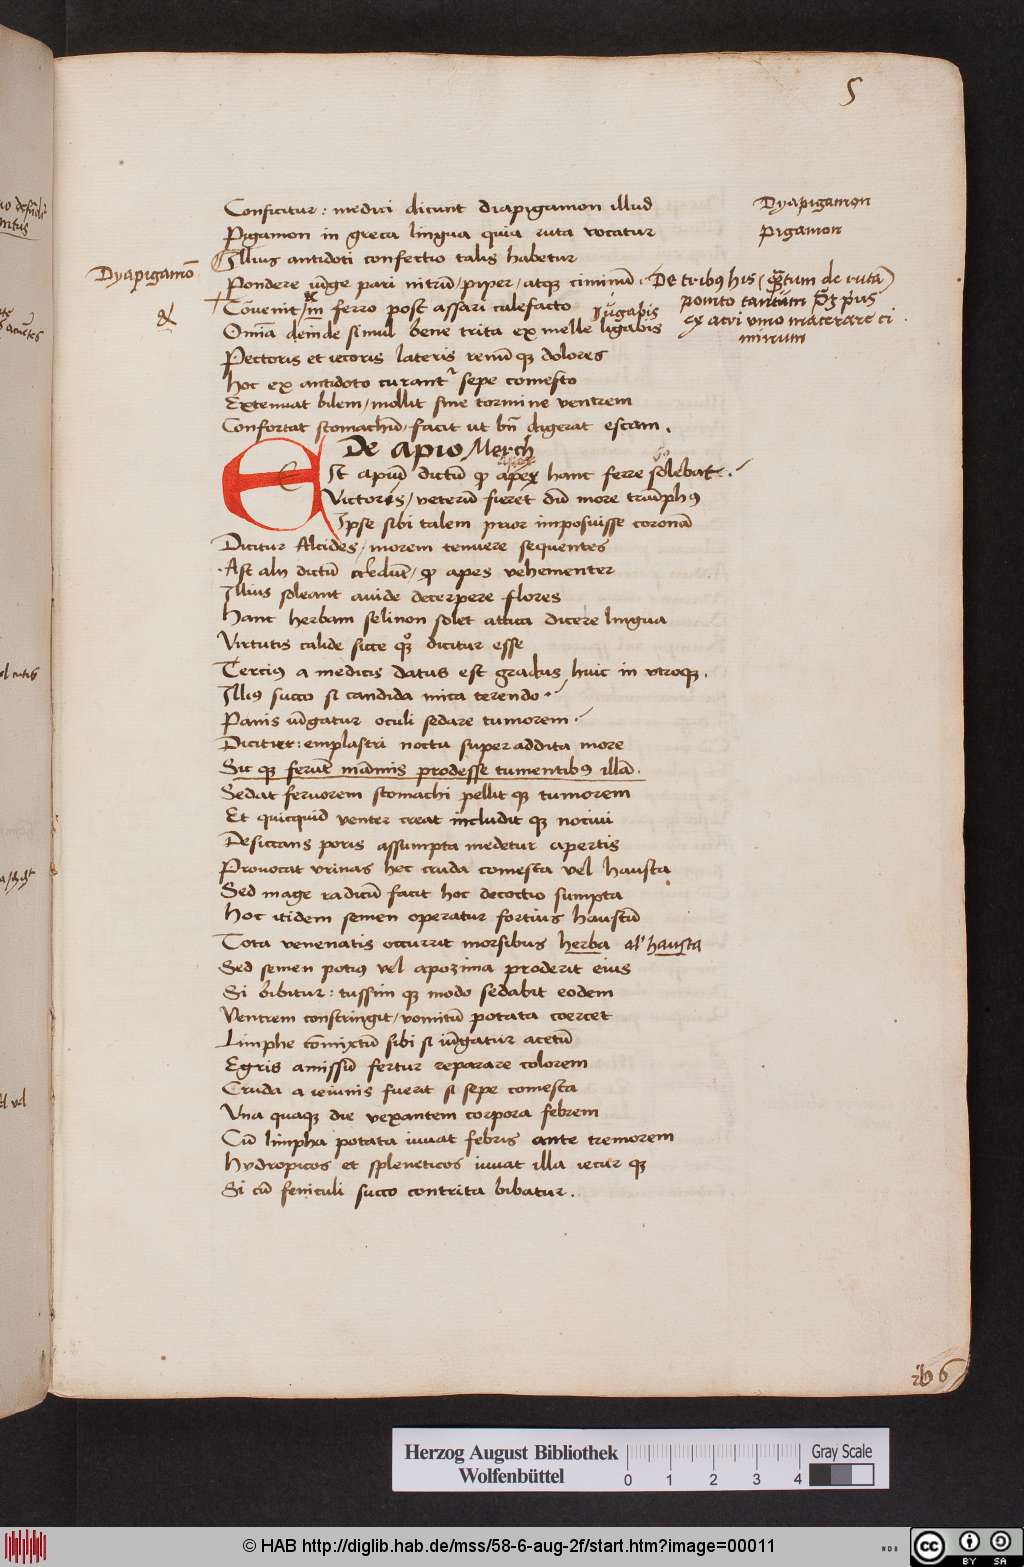 5
Conficitur : medici dicunt diapigamon illud
Dyapigamon
Pigamon in greca lingua quia ruta vocatur
pigamon
Illius antidoti confectio talis habetur
Dyapigamō
Pondere iūge pari nitrū / piper / atqꝫ ciminū .
De tribus his ( qͣntum de ruta )
Cōuenit / in ferro post assari calefacto
ponito tantum
Iūgabis
Om̄ia deinde simul bene trita ex melle ligabis
acri vino macerare ci
minum
Pectoris et iecoris lateris renū qꝫ dolores
hoc ex antidoto curant᷑ sepe comesto
Extenuat bilem / mollit sine tormine ventrem
Confortat stomachū / facit ut bn̄ digerat escam .
De apio Merch
ESt apiū dictū ꝙ apex hanc ferre solebat .
Victoris / veterū fieret dū more triūphꝰ
Ipse sibi talem prior imposuisse coronā
Dicitur Alcides / morem tenuere sequentes
Ast alij dictū credūt / ꝙ apes vehementer
Illius soleant auide decerpere flores
Hanc herbam selinon solet attica dicere lingua
Virtutis calide sicce qꝫ dicitur esse
Terciꝰ a medicis datus est gradus huic in vtroqꝫ .
Illiꝰ succo si candida mica terendo
Panis iūgatur oculi sedare tumorem
Dicitur : emplastri noctu superaddita more
Sic qꝫ ferūt māmis prodesse tumentibꝰ illā .
Sedat feruorem stomachi pellit qꝫ tumorem
Et quicquid venter creat includit qꝫ nociui
Desiccans poris assumpta medetur apertis
Prouocat vrinas hec cruda comesta vel hausta
Sed mage radicū facit hoc decoctio sumpta
Hoc itidem semen operatur fortius haustū
Tota venenatis occurrit morsibus herba al' hausta
Sed semen potiꝰ vel apozima proderit eius
Si bibitur : tussim qꝫ modo sedabit eodem
Ventrem constringit / vomitū potata coercet
Limphe cōmixtū sibi si iūgatur acetū
Egris amissū fertur reparare colorem
Cruda a ieiunis fuerit si sepe comesta
Vna quaqꝫ die vexantem corpora febrem
Cū limpha potata iuuat febris ante tremorem
Hydropicos et spleneticos iuuat illa iecur qꝫ
Si cū feniculi succo contrita bibatur .
Herzog August Bibliothek
Wolfenbüttel
0 1 2 3 4
Gray Scale
© HAB http://diglib.hab.de/mss/58-6-aug-2f/start.htm?image=00011
WDB
cc BY SA